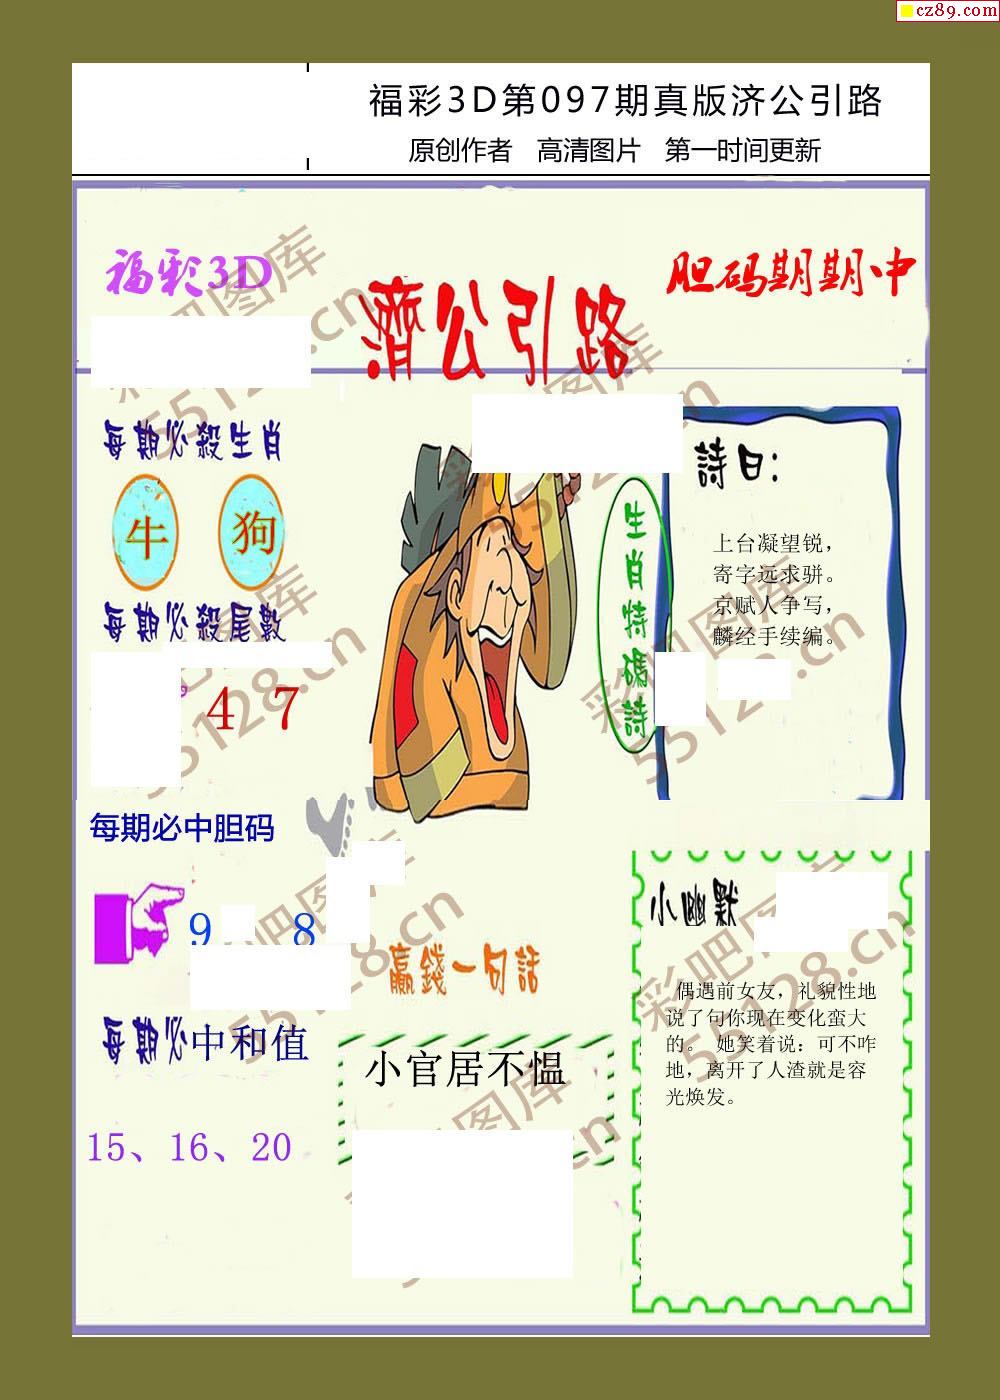 cz89.com
福彩3D第097期真版济公引路
原创作者 高清图片 第一时间更新
福彩3D
濟公引路
胆码期期中
每期必殺生肖
牛 狗
每期必殺尾數
4 7
每期必中胆码
9 8
每期必中和值
15、16、20
生肖特碼詩
詩曰：
上台凝望锐，
寄字远求骈。
京赋人争写，
麟经手续编。
赢錢一句話
小官居不愠
小幽默
偶遇前女友，礼貌性地
说了句你现在变化蛮大
的。 她笑着说：可不咋
地，离开了人渣就是容
光焕发。
彩吧图库
55128.cn